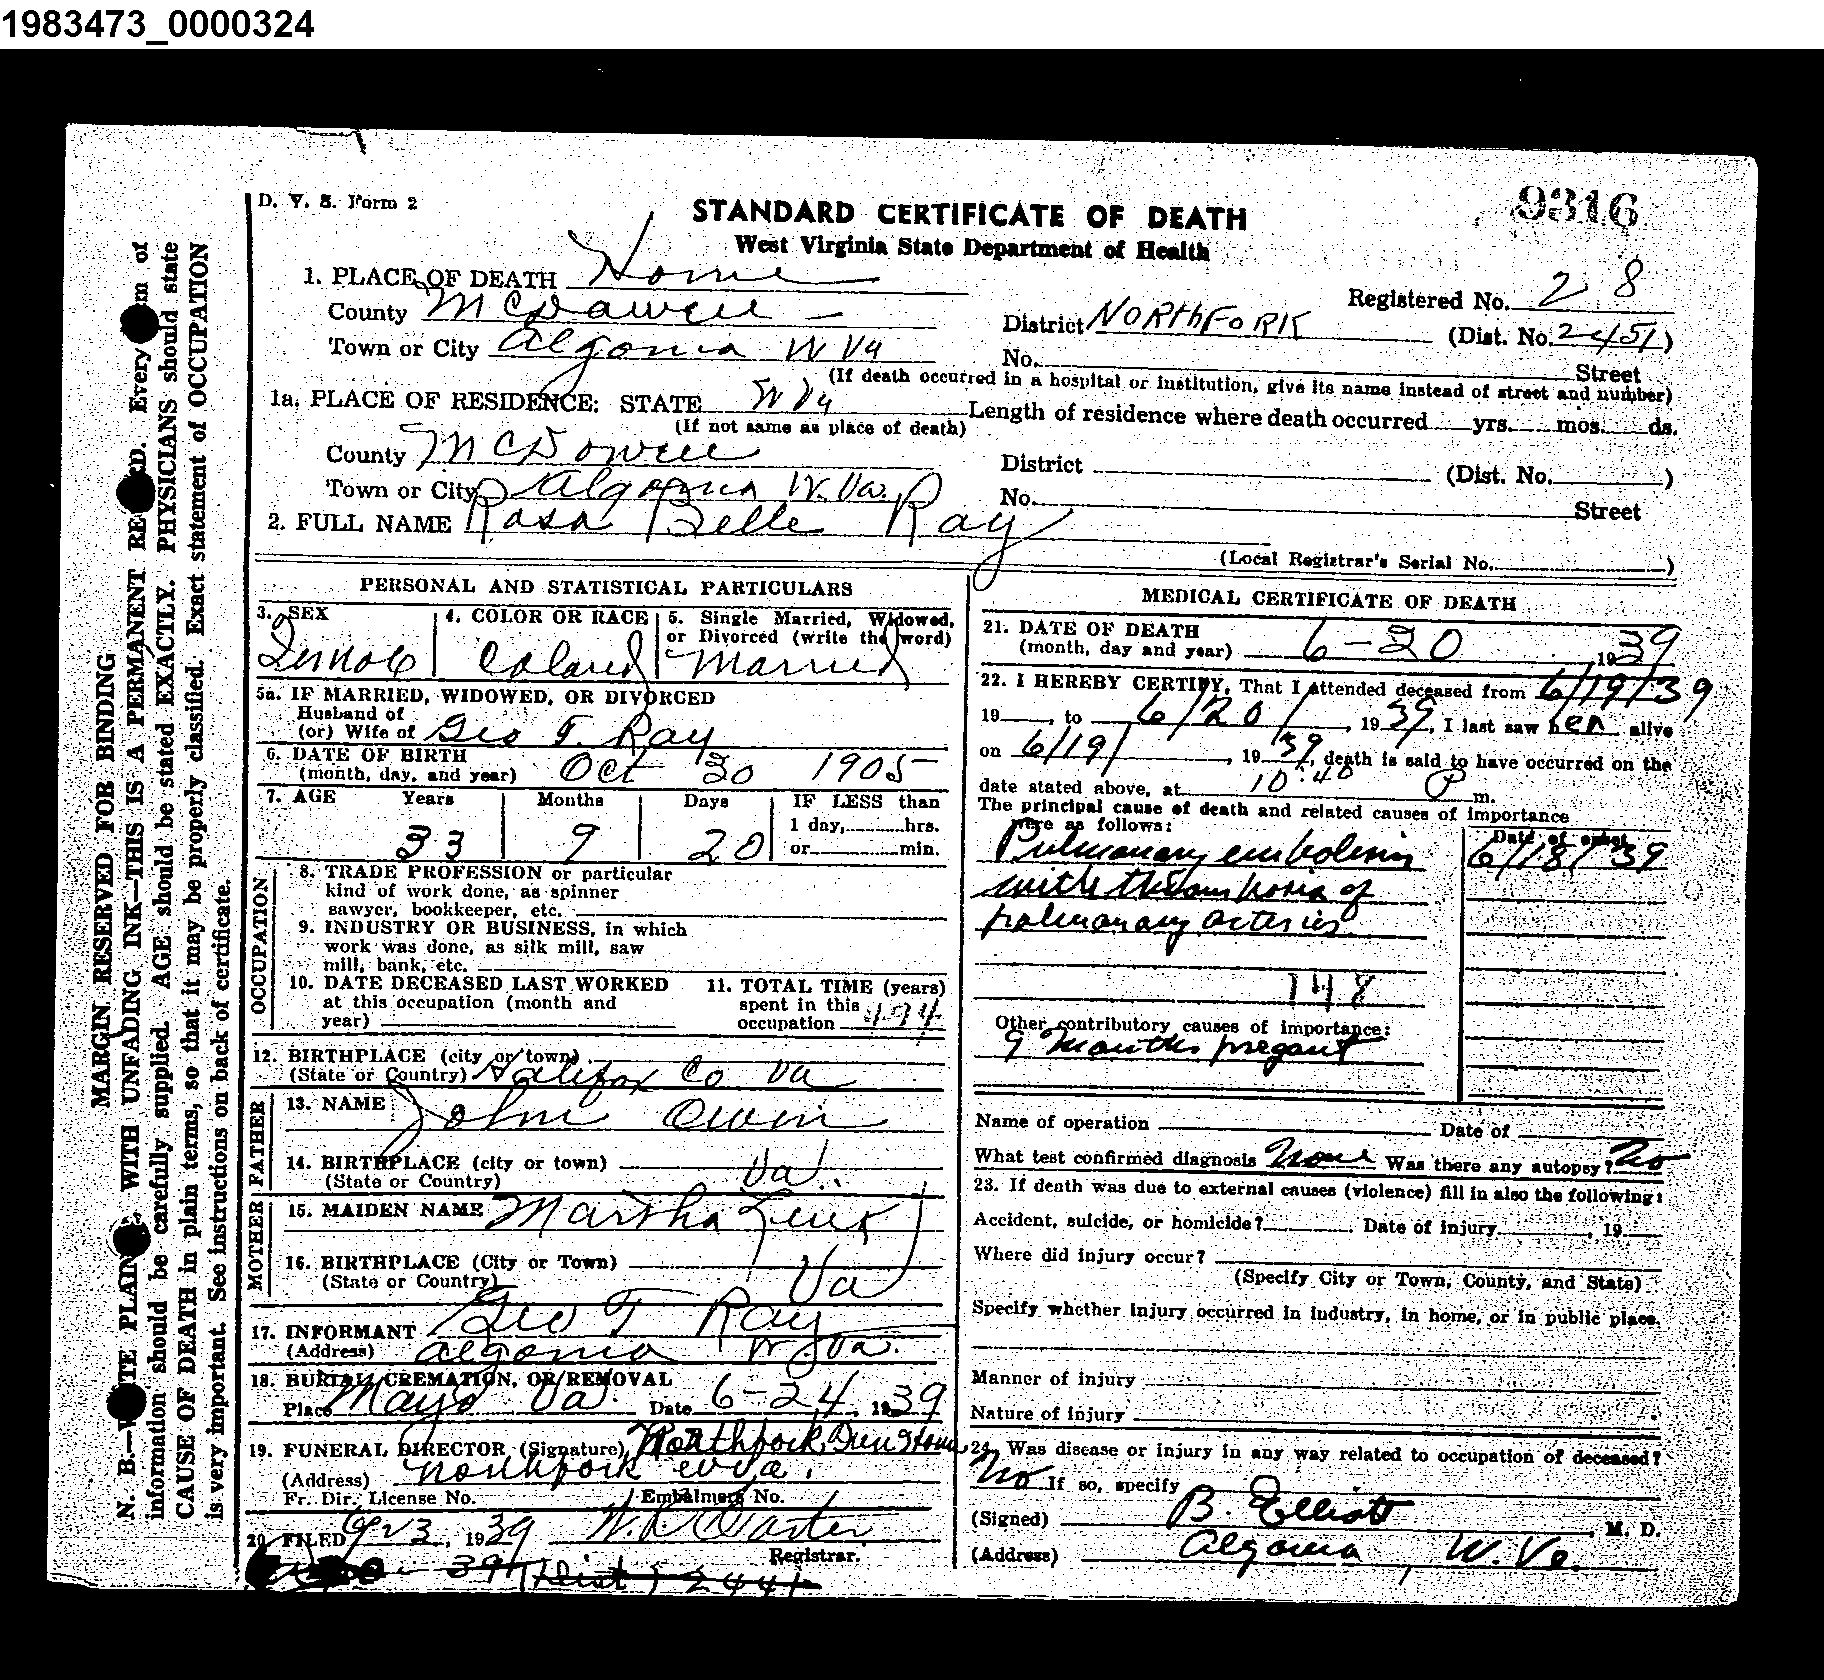 1983473_0000324
D. V. S. Form 2
STANDARD CERTIFICATE OF DEATH
9316
West Virginia State Department of Health
1. PLACE OF DEATH Home
Registered No. 28
County McDowell
District NORTHFORK (Dist. No. 2451)
Town or City Algoma W Va
No. Street
(If death occurred in a hospital or institution, give its name instead of street and number)
1a. PLACE OF RESIDENCE: STATE W Va Length of residence where death occurred yrs. mos. ds.
(If not same as place of death)
County McDowell
District (Dist. No. )
Town or City Algoma W. Va.
No. Street
2. FULL NAME Rosa Belle Ray
(Local Registrar's Serial No. )
PERSONAL AND STATISTICAL PARTICULARS
3. SEX 4. COLOR OR RACE 5. Single Married, Widowed,
or Divorced (write the word)
Female Colored Married
5a. IF MARRIED, WIDOWED, OR DIVORCED
Husband of
(or) Wife of Geo T. Ray
6. DATE OF BIRTH
(month, day, and year) Oct 30 1905
7. AGE Years Months Days IF LESS than
1 day, hrs.
33 9 20 or min.
OCCUPATION
8. TRADE PROFESSION or particular
kind of work done, as spinner
sawyer, bookkeeper, etc.
9. INDUSTRY OR BUSINESS, in which
work was done, as silk mill, saw
mill, bank, etc.
10. DATE DECEASED LAST WORKED
at this occupation (month and
year)
11. TOTAL TIME (years)
spent in this
occupation 494
12. BIRTHPLACE (city or town)
(State or Country) Halifax Co Va
FATHER
13. NAME John Owen
14. BIRTHPLACE (city or town)
(State or Country) Va.
MOTHER
15. MAIDEN NAME Martha
16. BIRTHPLACE (City or Town)
(State or Country) Va
17. INFORMANT Geo T Ray
(Address) Algoma W. Va.
18. BURIAL, CREMATION, OR REMOVAL
Place Mayo Va. Date 6-24, 1939
19. FUNERAL DIRECTOR (Signature) Northfork
(Address) Northfork W Va.
Fr. Dir. License No. Embalmers No.
20. FILED 23, 1939 Carter
Registrar.
39 Dist 2441
MEDICAL CERTIFICATE OF DEATH
21. DATE OF DEATH
(month, day and year) 6-20 1939
22. I HEREBY CERTIFY, That I attended deceased from 6/19/39
19 , to 6/20/ , 1939, I last saw her alive
on 6/19/ , 1939, death is said to have occurred on the
date stated above, at 10:40 P m.
The principal cause of death and related causes of importance
were as follows: Date of onset
Pulmonary embolism 6/18/39
with thrombosis of
pulmonary arteries
148
Other contributory causes of importance:
9 months pregant
Name of operation Date of
What test confirmed diagnosis None Was there any autopsy? No
23. If death was due to external causes (violence) fill in also the following:
Accident, suicide, or homicide? Date of injury , 19
Where did injury occur?
(Specify City or Town, County, and State)
Specify whether injury occurred in industry, in home, or in public place.
Manner of injury
Nature of injury
24. Was disease or injury in any way related to occupation of deceased?
No If so, specify
(Signed) B. Elliott , M. D.
(Address) Algoma, W. Va.
MARGIN RESERVED FOR BINDING
N. B.— WITH UNFADING INK—THIS IS A PERMANENT . Every of
information should be carefully supplied. AGE should be stated EXACTLY. PHYSICIANS should state
CAUSE OF DEATH in plain terms, so that it may be properly classified. Exact statement of OCCUPATION
is very important. See instructions on back of certificate.